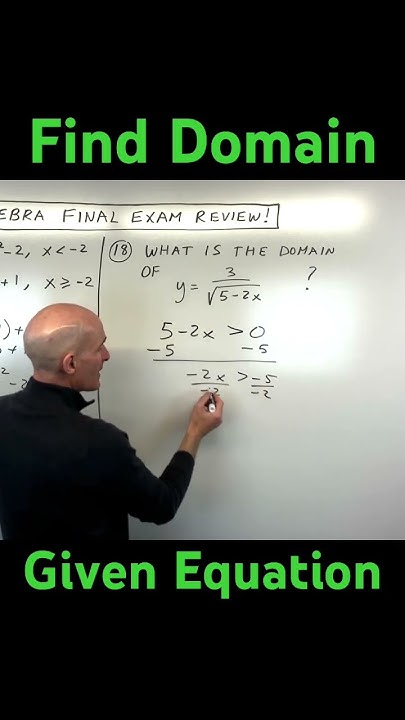 Find Domain
EBRA FINAL EXAM REVIEW!
²-2, x<-2
+1, x≥-2
18 WHAT IS THE DOMAIN
OF y = 3/√(5-2x) ?
5-2x > 0
-5 -5
-2x > -5
-2 -2
Given Equation